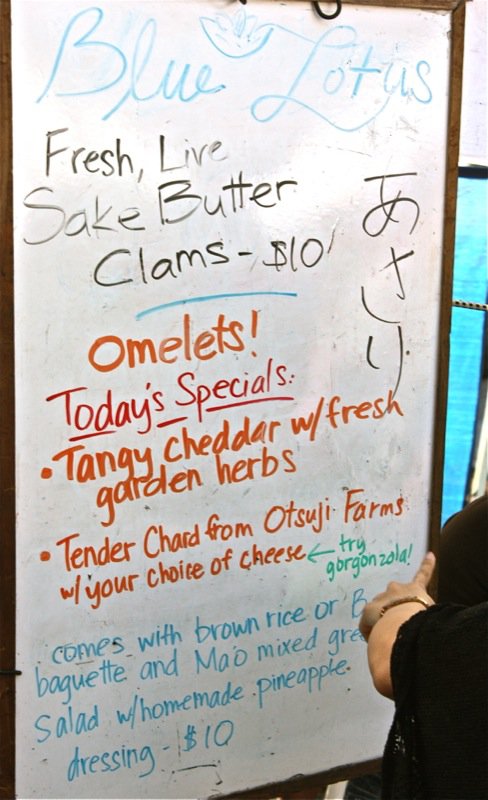 Blue Lotus
Fresh, Live
Sake Butter
Clams - $10
あさり
Omelets!
Today's Specials:
• Tangy cheddar w/fresh
garden herbs
• Tender Chard from Otsuji Farms
w/your choice of cheese ← try
gorgonzola!
comes with brown rice or
baguette and Ma'o mixed
Salad w/homemade pineapple
dressing - $10